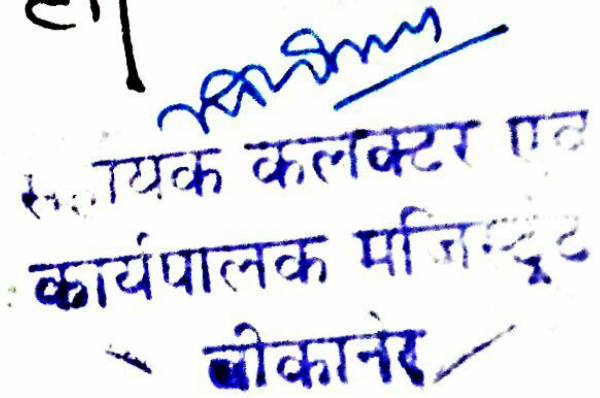 सहायक कलक्टर एवं
कार्यपालक मजिस्ट्रेट
बीकानेर